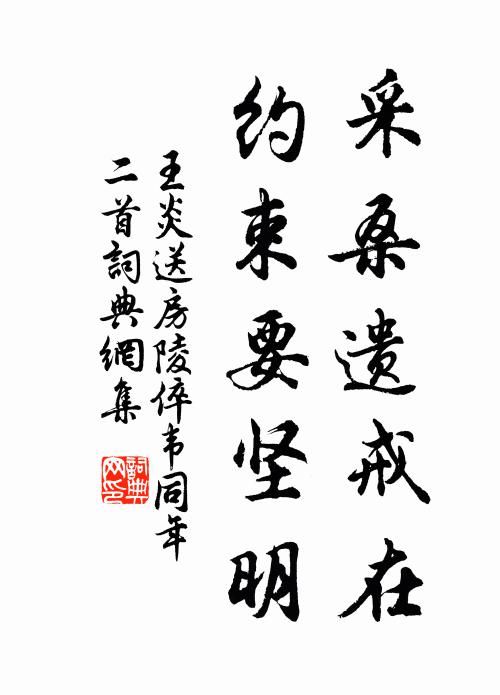 采桑遗戒在
约束要坚明
王炎送房陵倅韦同年
二首詞典網集
詞典
网印